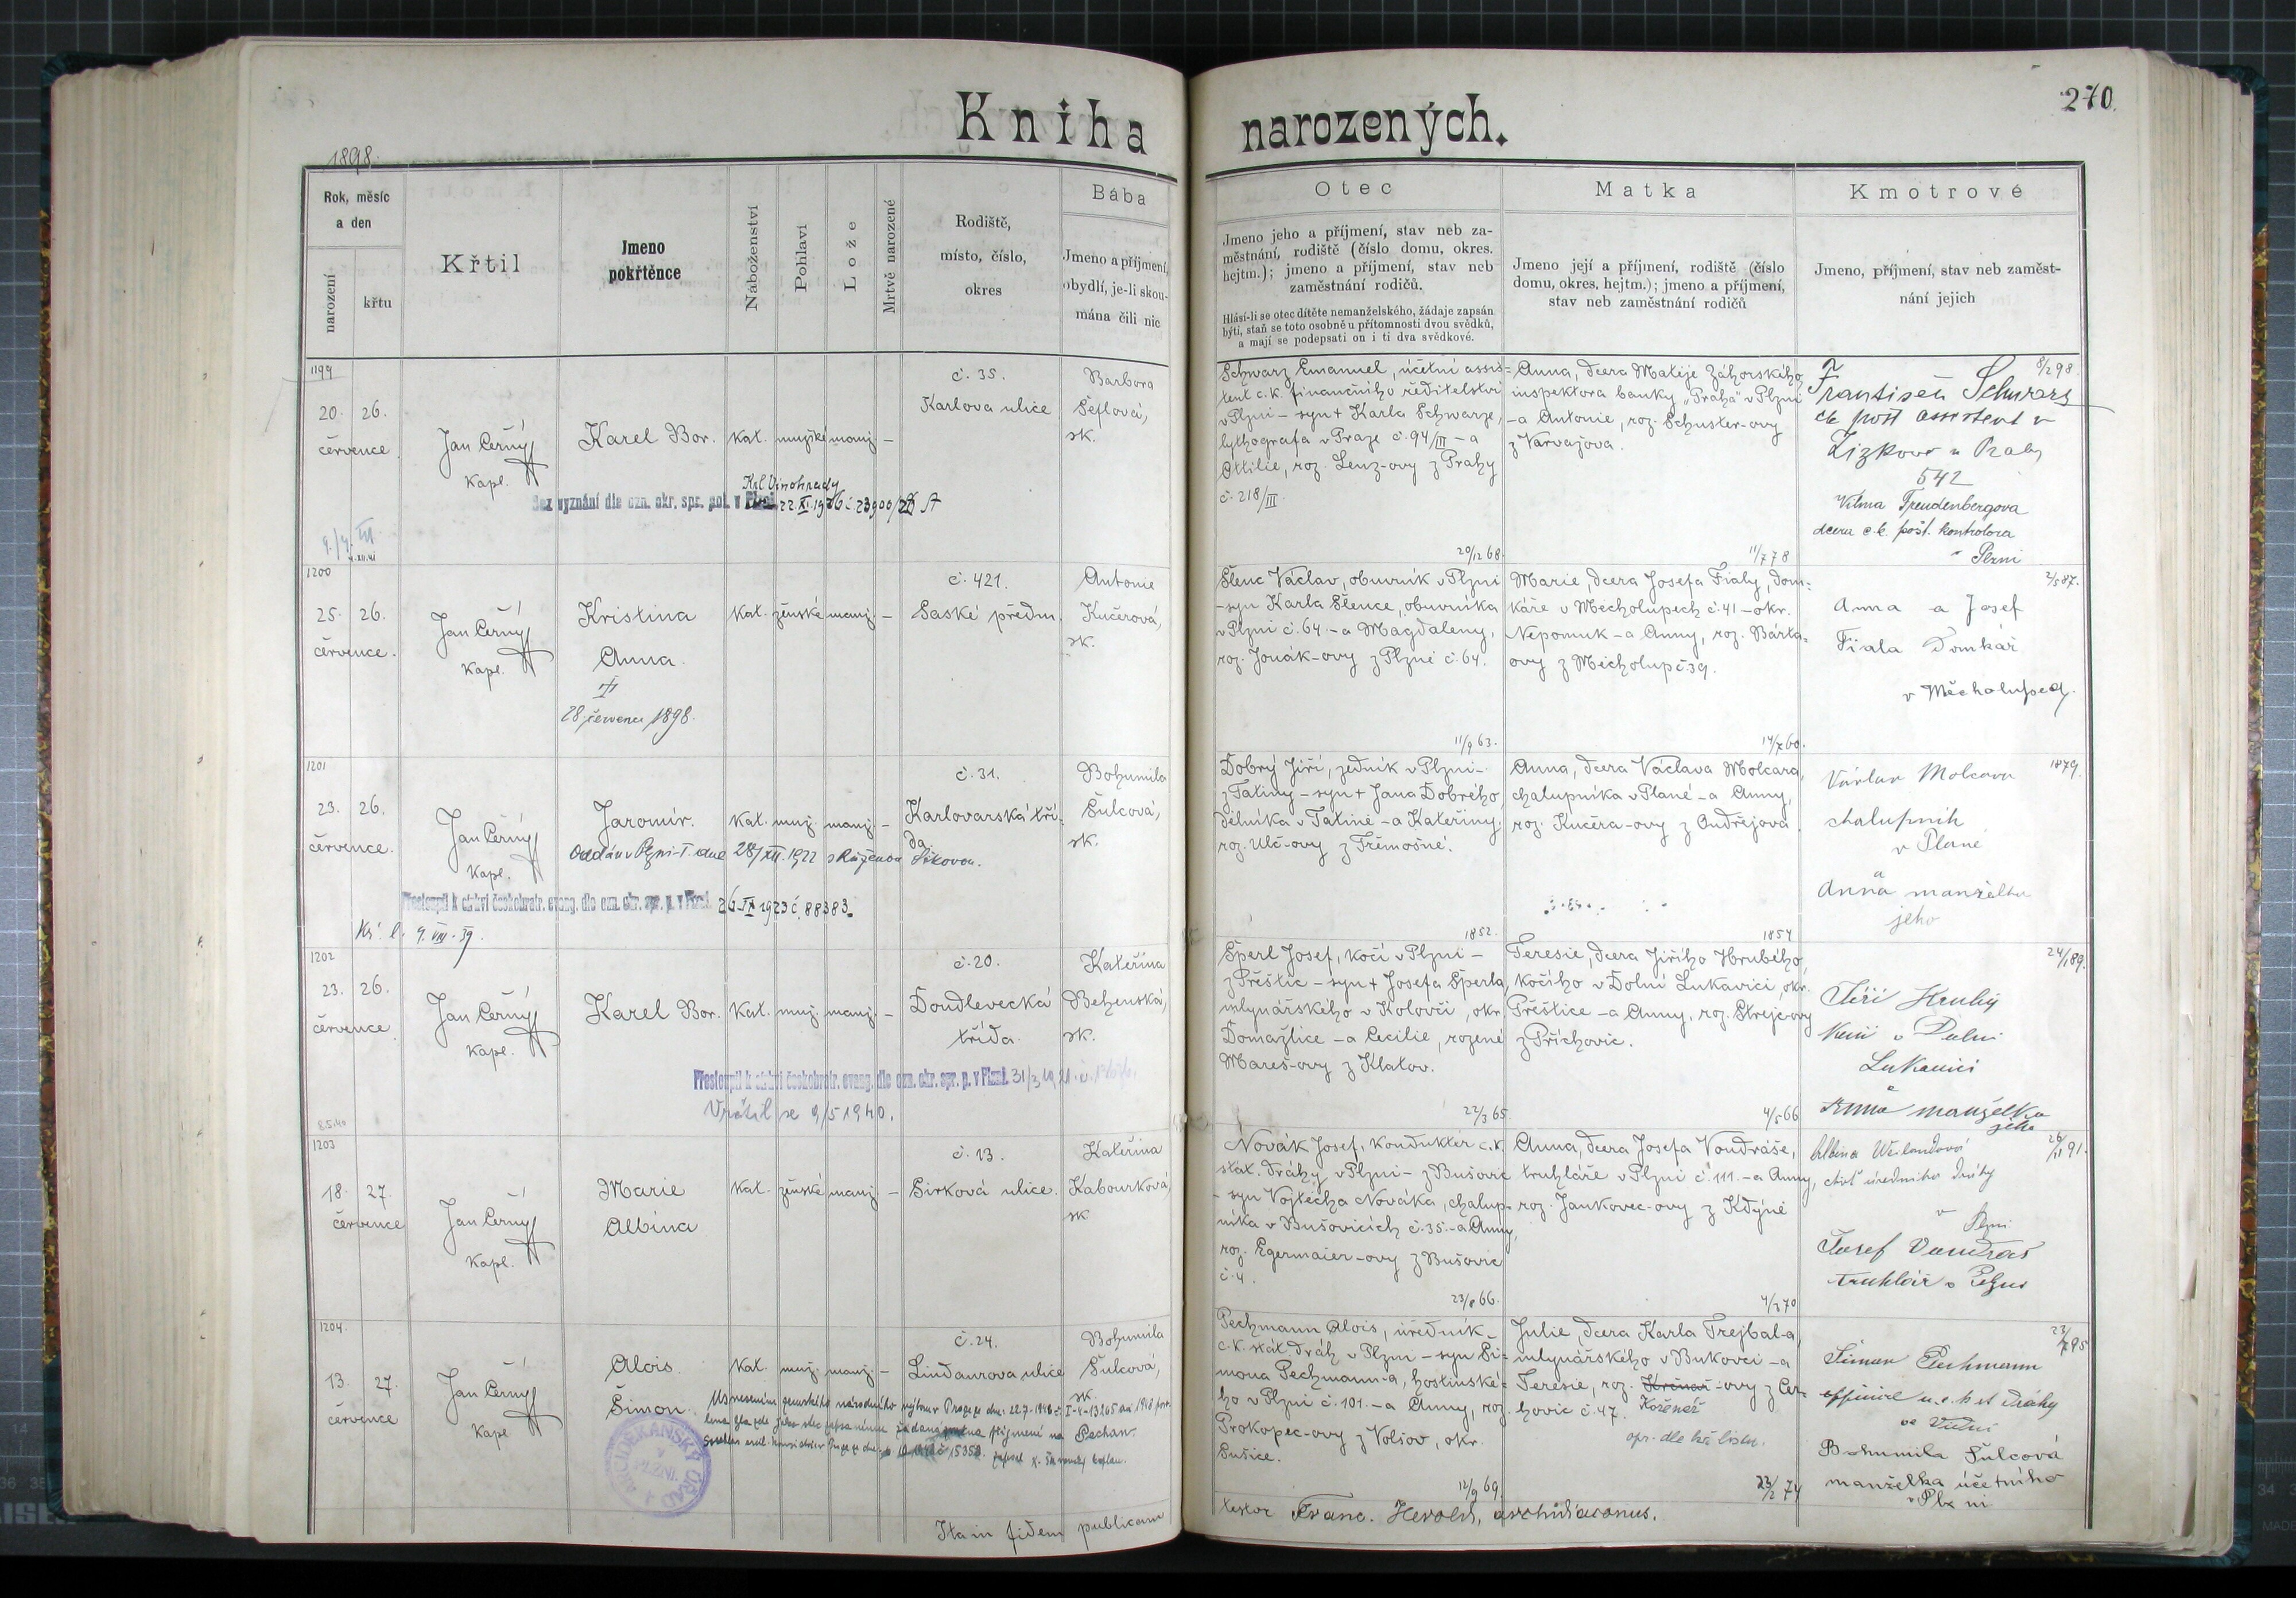 Kniha narozených.
270.
1898.
Rok, měsíc
a den
narození
křtu
Křtil
Jmeno
pokřtěnce
Náboženství
Pohlaví
Lože
Mrtvě narozené
Rodiště,
místo, číslo,
okres
Bába
Jmeno a příjmení,
obydlí, je-li skou-
mána čili nic
Otec
Jmeno jeho a příjmení, stav neb za-
městnání, rodiště (číslo domu, okres.
hejtm.); jmeno a příjmení, stav neb
zaměstnání rodičů.
Hlásí-li se otec dítěte nemanželského, žádaje zapsán
býti, staň se toto osobně u přítomnosti dvou svědků,
a mají se podepsati on i ti dva svědkové.
Matka
Jmeno její a příjmení, rodiště (číslo
domu, okres. hejtm.); jmeno a příjmení,
stav neb zaměstnání rodičů
Kmotrové
Jmeno, příjmení, stav neb zaměst-
nání jejich
1199
20. 26.
července
Jan Černý
Kapl.
Karel Bor.
kat. mužské manž. –
č. 35.
Karlova ulice
Barbora
Šeflová,
sk.
Krl. Vinohrady
Bez vyznání dle ozn. okr. spr. pol. v Plzni 22. XI. 1926 č. 23900/26
Schwarz Emanuel, účetní assis-
tent c. k. finančního ředitelství
v Plzni – syn + Karla Schwarze,
lythografa v Praze č. 94/III – a
Ottilie, roz. Lenz-ovy z Prahy
č. 218/III.
20/12 68.
Anna, dcera Matěje Záhorského,
inspektora banky „Praha" v Plzni
– a Antonie, roz. Schuster-ovy
z Varvažova.
11/7 78
8/2 98.
František Schwarz
ck pošt assistent v
Žižkově u Prahy
542
Vilma Freudenbergova
dcera c. k. pošt. kontrolora
v Plzni
1200
25. 26.
července.
Jan Černý
Kapl.
Kristina
Anna.
28. července 1898.
kat. ženské manž. –
č. 421.
Saské předm.
Antonie
Kučerová,
sk.
Šlenc Václav, obuvník v Plzni
– syn Karla Šlence, obuvníka
v Plzni č. 64. – a Magdaleny,
roz. Jonák-ovy z Plzně č. 64.
11/9 63.
Marie, dcera Josefa Fialy, dom-
káře v Měcholupech č. 41 – okr.
Nepomuk – a Anny, roz. Bárta-
ovy z Měcholup č. 39.
14/7 60.
2/5 87.
Anna a Josef
Fiala Domkář
v Měcholupech.
1201
23. 26.
července.
Jan Černý
Kapl.
Jaromír.
kat. muž. manž. –
č. 31.
Karlovarská tří-
da
Bohumila
Šulcová,
sk.
Oddán v Plzni-I. dne 28/XII. 1922 s Růženou Šikovou.
Přestoupil k církvi českobratr. evang. dle ozn. okr. spr. p. v Plzni 26. IX 1923 č. 88383.
Kř. l. 9. VIII. 39.
Dobrý Jiří, zedník v Plzni –
z Tatiny – syn + Jana Dobrého,
dělníka v Tatině – a Kateřiny,
roz. Ulč-ovy z Třemošné.
1852.
Anna, dcera Václava Molcara,
chalupníka v Plané – a Anny,
roz. Kučera-ovy z Ondřejova.
1854
1879.
Václav Molcar
chalupník
v Plané
a
Anna manželka
jeho
1202
23. 26.
července
Jan Černý
Kapl.
Karel Bor.
kat. muž. manž. –
č. 20.
Doudlevecká
třída.
Kateřina
Behenská,
sk.
Přestoupil k církvi českobratr. evang. dle ozn. okr. spr. p. v Plzni 31/3 1921
Vrátil se 9/5 1940.
8.5.40
Šperl Josef, kočí v Plzni –
z Přeštic – syn + Josefa Šperla,
mlynářského v Kolovči, okr.
Domažlice – a Cecilie, rozené
Mareš-ovy z Klatov.
22/3 65.
Teresie, dcera Jiřího Hrubého,
kočího v Dolní Lukavici, okr.
Přeštice – a Anny, roz. Strejc-ovy
z Příchovic.
4/5 66
24/1 89.
Jiří Hrubý
v Dolní
Lukavici
a
Anna manželka
jeho
1203
18. 27.
července
Jan Černý
Kapl.
Marie
Albína
kat. ženské manž. –
č. 13.
Sirková ulice.
Kateřina
Kabourková,
sk
Novák Josef, konduktér c. k.
stát. dráhy v Plzni – z Bušovic
– syn Vojtěcha Nováka, chalup-
níka v Bušovicích č. 35. – a Anny,
roz. Egermaier-ovy z Bušovic
č. 4.
23/8 66.
Anna, dcera Josefa Vondráše,
truhláře v Plzni č. 111. – a Anny,
roz. Jankovec-ovy z Kdýně
4/3 70
26/11 91.
Albina
choť úředníka dráhy
v Plzni
Josef Vondráš
truhlář v Plzni
1204.
13. 27.
července
Jan Černý
Kapl
Alois
Šimon.
kat. muž. manž. –
č. 24.
Lindaurova ulice
Bohumila
Šulcová,
sk.
Usnesením zemského národního výboru v Praze ze dne: 22.7.1948 č: I-4-13265
příjmení na
Pechan.
ARCIDĚKANSKÝ ÚŘAD
V
PLZNI.
Pechmann Alois, úředník
c. k. stát. dráh v Plzni – syn Ši-
mona Pechmann-a, hostinské-
ho v Plzni č. 101. – a Anny, roz.
Prokopec-ovy z Volšov, okr.
Sušice.
12/9 69.
Julie, dcera Karla Trejbal-a,
mlynářského v Bukovci – a
Teresie, roz. -ovy z Cer-
hovic č. 47. Kořenář
opr. dle kř. listu.
23/2 74
Šimon Pechmann
c. k. st dráhy
Bohumila Šulcová
manželka účetního
v Plzni
Ita in fidem publicam
testor Franc. Herold, archidiaconus.